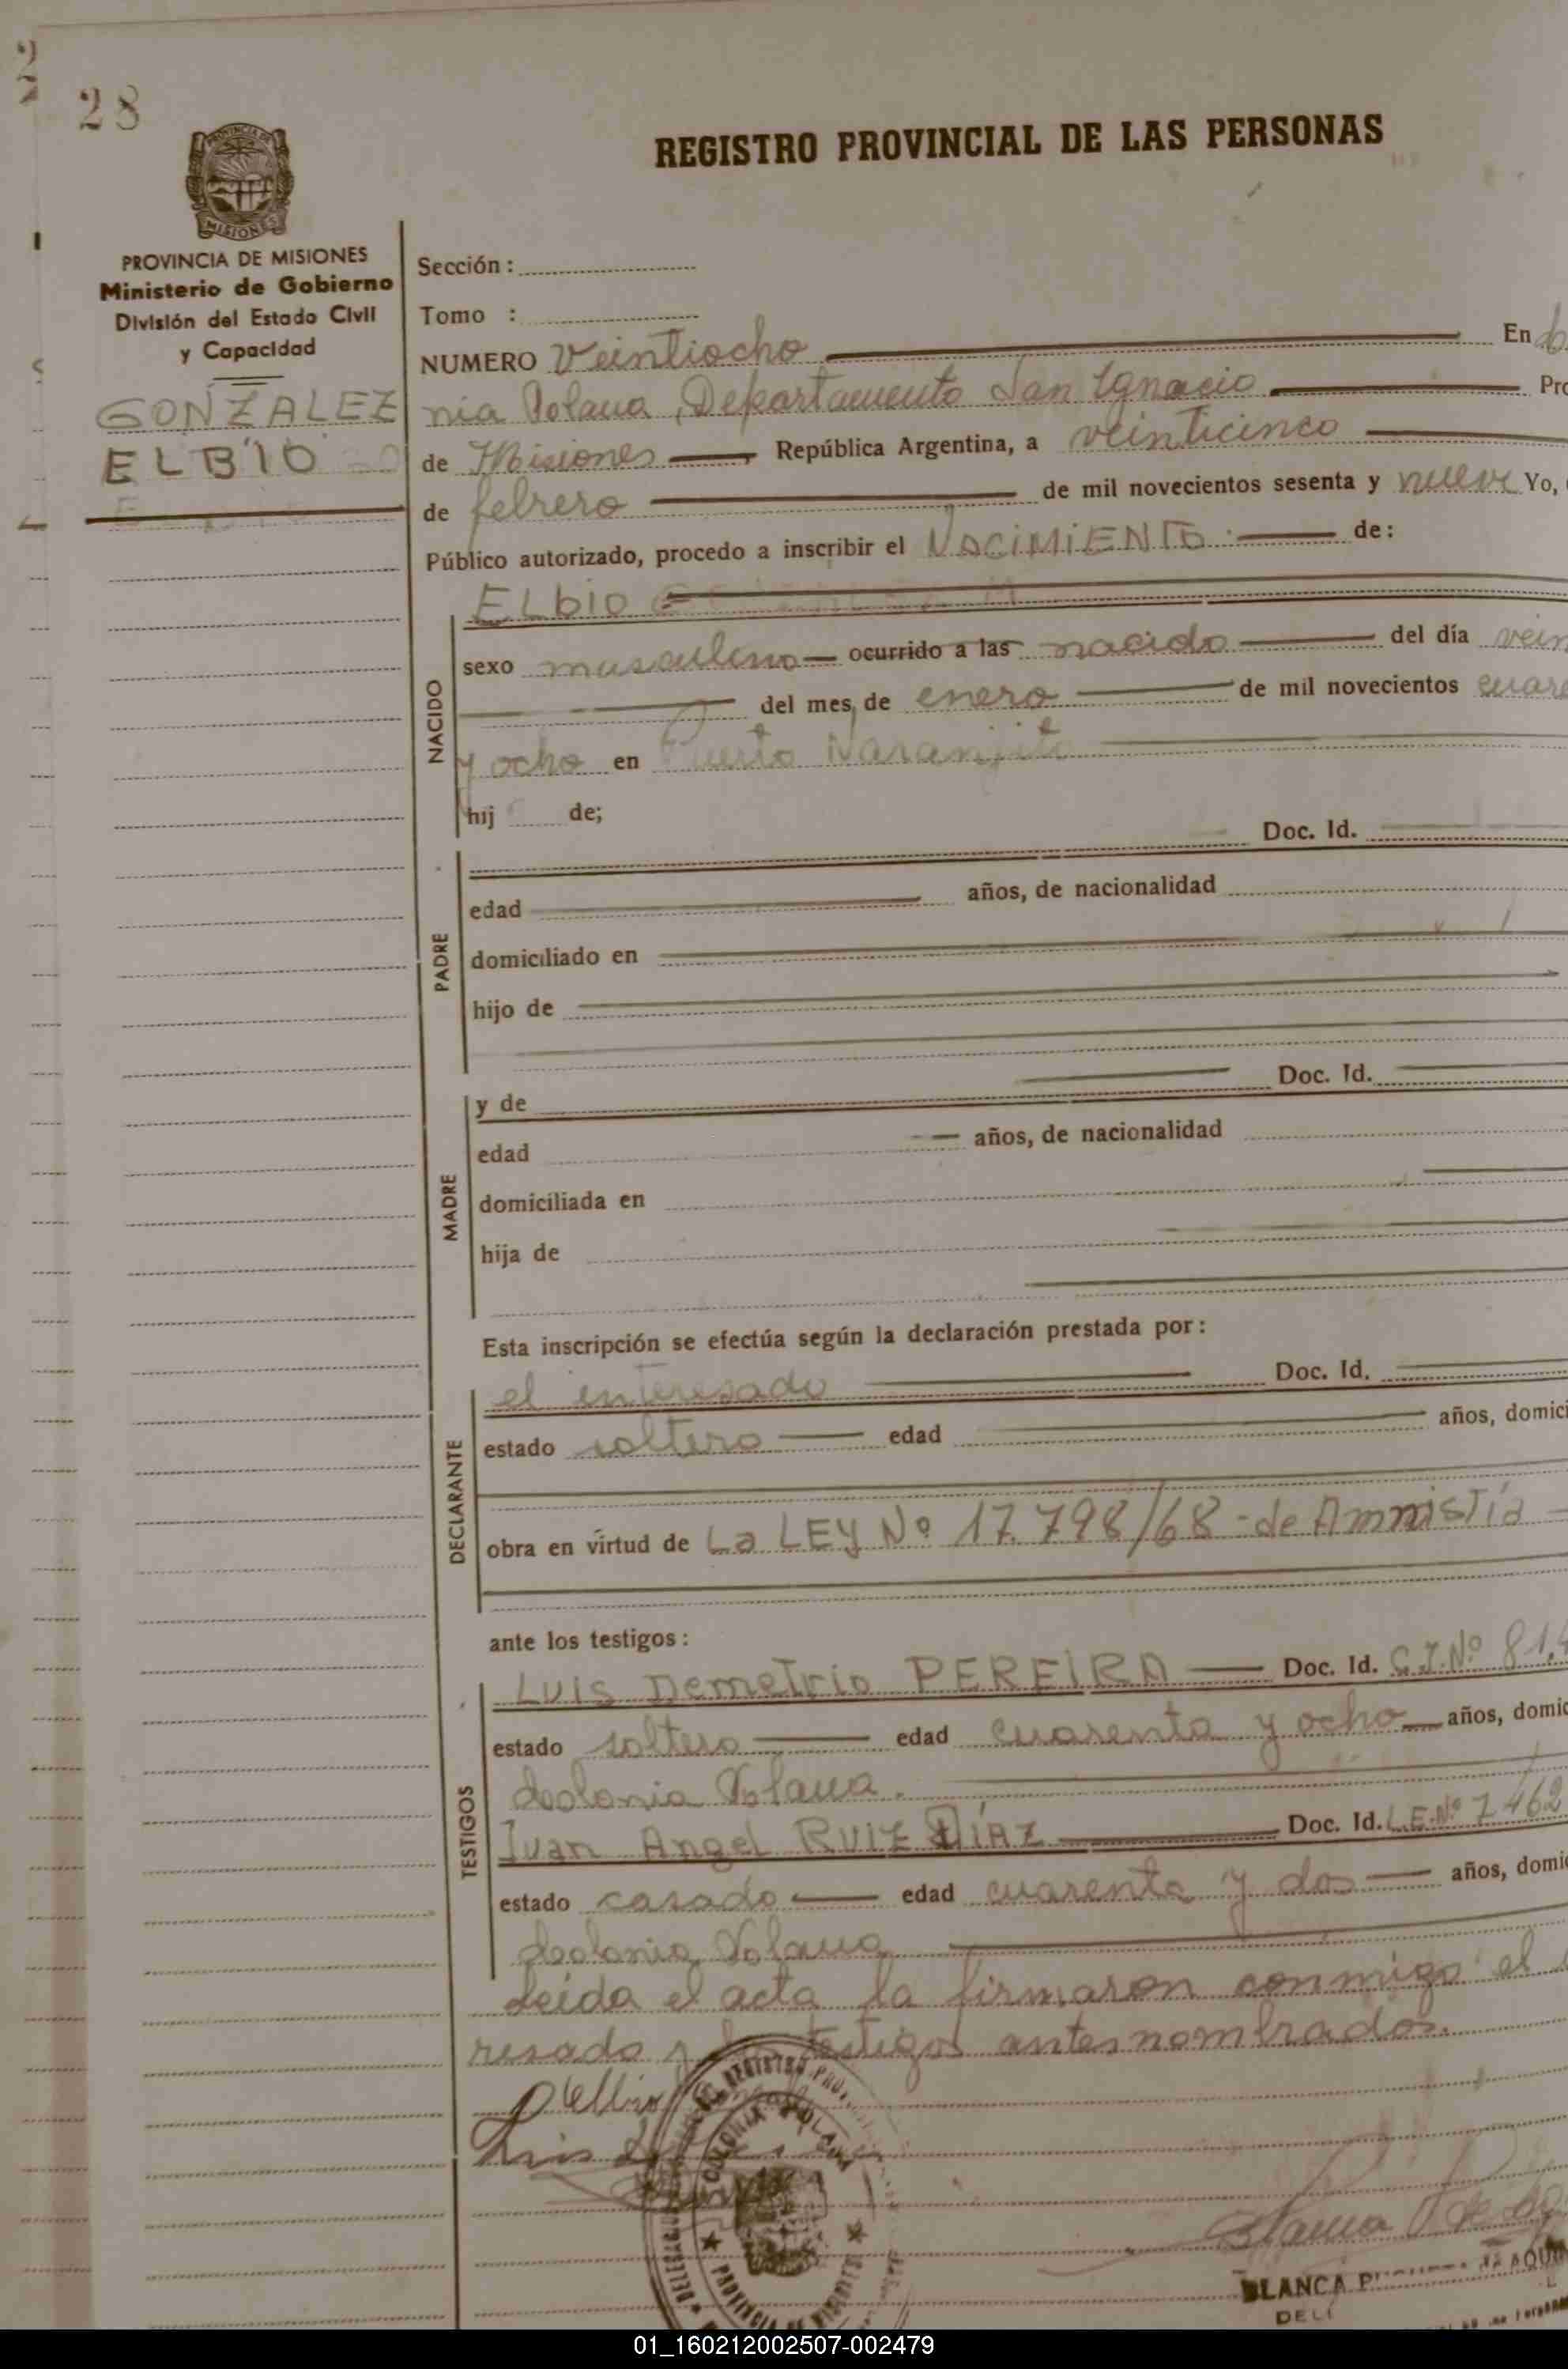 28
REGISTRO PROVINCIAL DE LAS PERSONAS
PROVINCIA DE
MISIONES
PROVINCIA DE MISIONES
Ministerio de Gobierno
División del Estado Civil
y Capacidad
GONZALEZ
ELBIO
Sección:
Tomo :
NUMERO Veintiocho En
nia Polana, Departamento San Ignacio Pro
de Misiones República Argentina, a veinticinco
de febrero de mil novecientos sesenta y nueve Yo,
Público autorizado, procedo a inscribir el NACIMIENTO de:
NACIDO
ELbIO
sexo masculino ocurrido a las nacido del día vein
del mes de enero de mil novecientos cuare
y ocho en Puerto Naranjito
hij de;
PADRE
Doc. Id.
edad años, de nacionalidad
domiciliado en
hijo de
MADRE
y de Doc. Id.
edad años, de nacionalidad
domiciliada en
hija de
Esta inscripción se efectúa según la declaración prestada por:
DECLARANTE
el interesado Doc. Id.
estado soltero edad años, domici
obra en virtud de La LEY Nº 17.798/68 - de Amnistía
ante los testigos:
TESTIGOS
LUIS Demetrio PEREIRA Doc. Id. C.I.Nº 81.
estado soltero edad cuarenta y ocho años, domic
Colonia Polana.
Juan Angel RUIZ DÍAZ Doc. Id. L.E.Nº 7.462
estado casado edad cuarenta y dos años, domi
Colonia Polana
Leída el acta la firmaron conmigo el
resado y los testigos antes nombrados.
Luis
REGISTRO
COLONIA POLANA
PROVINCIA DE MISIONES
BLANCA
DELE
01_160212002507-002479